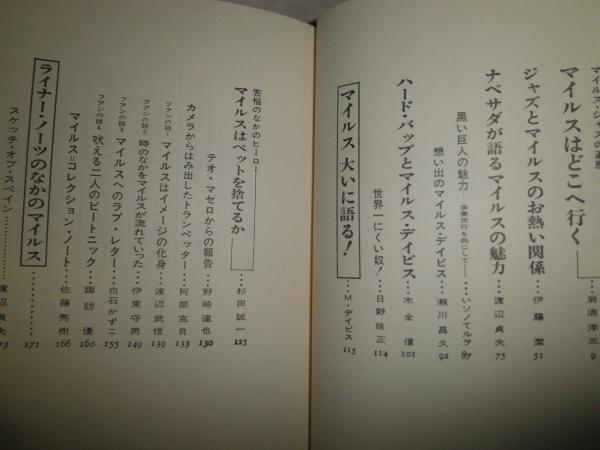 マイルス・ジャズの遍歴
マイルスはどこへ行く——岩浪洋三 9
ジャズとマイルスのお熱い関係……伊藤潔 51
ナベサダが語るマイルスの魅力……渡辺貞夫 75
黒い巨人の魅力—演奏旅行を共にして—……いソノてルヲ 87
想い出のマイルス・デイビス……瀬川昌久 92
ハード・バップとマイルス・デイビス……木全信 101
世界一にくい奴!……日野皓正 114
マイルス 大いに語る!……M・デイビス 115
苦悩のなかのヒーロー
マイルスはペットを捨てるか——杉田誠一 125
テオ・マセロからの報告……野崎達也 130
カメラからはみ出したトランペッター……阿部克自 133
ファンの眼・1 マイルスはイメージの化身……渡辺武信 139
ファンの眼・2 時のなかをマイルスが流れていった……伊東守男 149
ファンの眼・3 マイルスへのラブ・レター……白石かずこ 155
ファンの眼・4 吠える二人のビートニック……諏訪優 160
マイルス=コレクション・ノート……佐藤秀樹 166
ライナー・ノーツのなかのマイルス……171
スケッチ・オブ・スペイン……渡辺貞夫 173